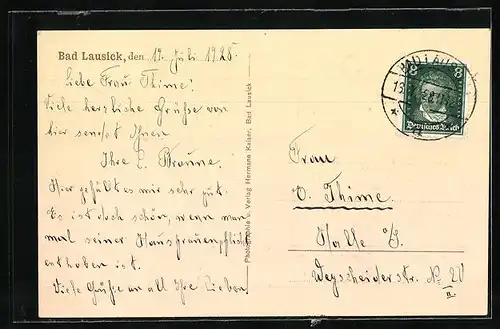 Bad Lausick, den 19. Juli 1928.
Liebe Frau Thime!
Viele herzliche Grüße von
hier sendet Ihnen
Ihre E. Braune.
Hier gefällt es mir sehr gut.
Es ist doch schön, wenn man
mal seiner Hausfrauenpflichten
enthoben ist.
Viele Grüße an all Ihre Lieben.
Photographie u. Verlag Hermann Kaiser, Bad Lausick
BAD LAUSICK
8 8
Deutsches Reich
Frau
O. Thime.
Halle a/S.
Wegscheiderstr. No 20
II.